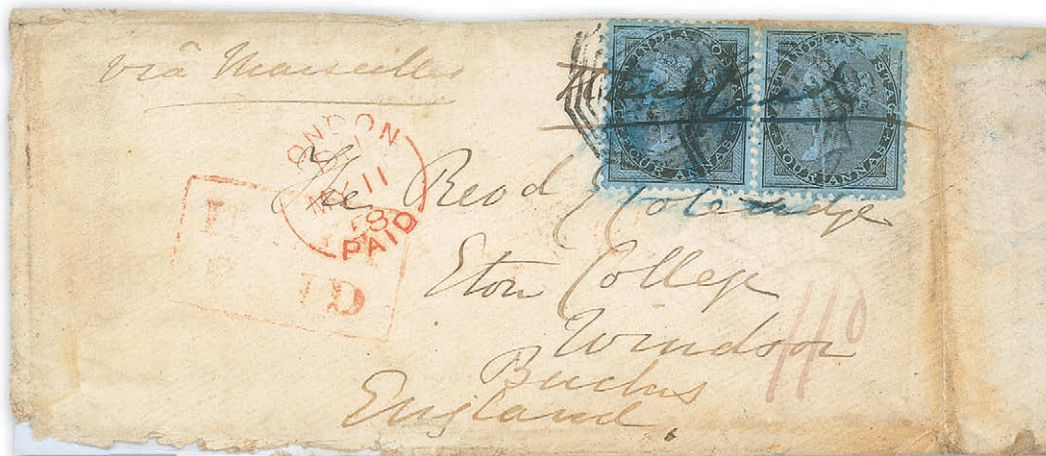 via Marseilles
EAST INDIA POSTAGE
FOUR ANNAS
EAST INDIA POSTAGE
FOUR ANNAS
LONDON
MY 11
58
PAID
The Revd Coleridge
Eton College
Windsor
Bucks
England.